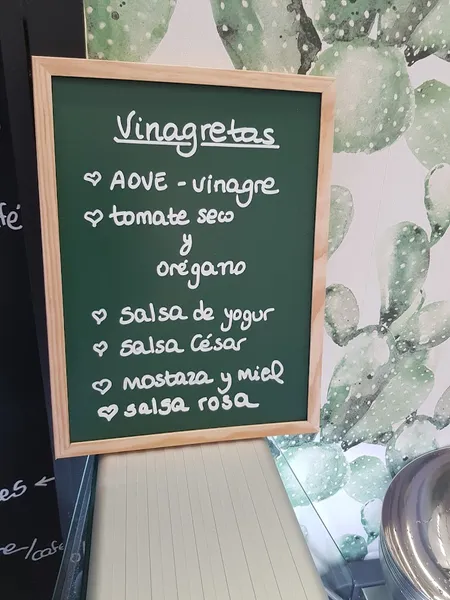 Vinagretas
♡ AOVE - vinagre
♡ tomate seco
y
orégano
♡ salsa de yogur
♡ salsa César
♡ mostaza y miel
♡ salsa rosa